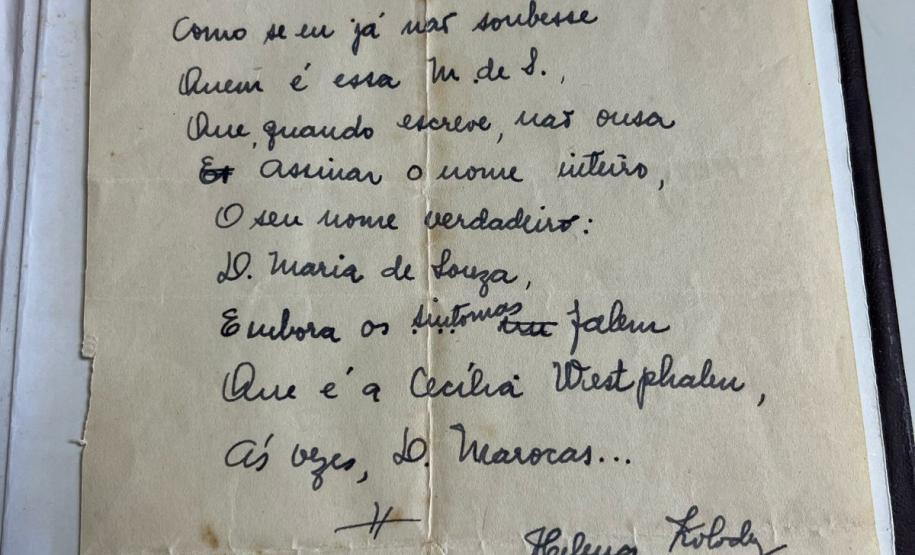 Como se eu já não soubesse
Quem é essa M. de S.,
Que, quando escreve, não ousa
Assinar o nome inteiro,
O seu nome verdadeiro:
D. Maria de Souza,
Embora os sintomas falem
Que é a Cecília Westphalen,
Às vezes, D. Marocas...
Helena Kolody